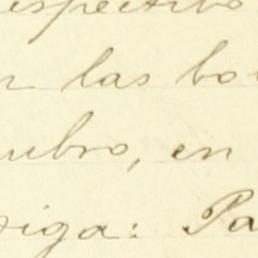 espectivo
las bo
ubro, en
iga: Pa